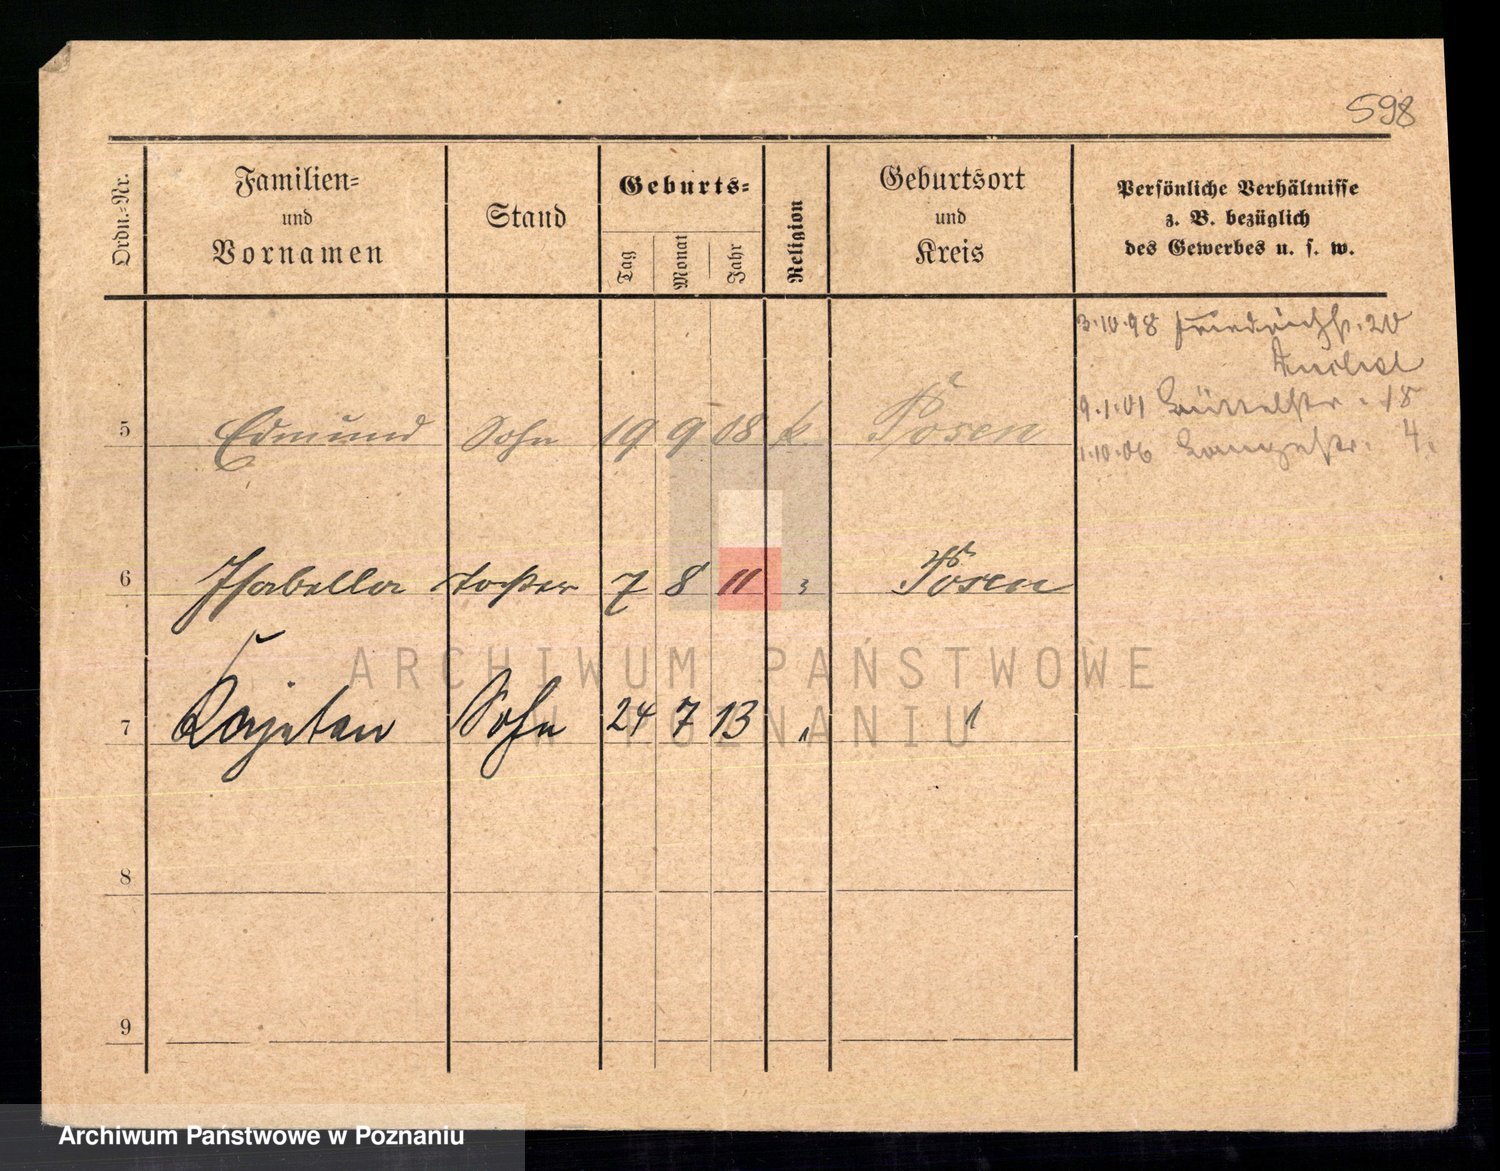 598
Ordn.-Nr.
Familien-
und
Vornamen
Stand
Geburts-
Tag
Monat
Jahr
Religion
Geburtsort
und
Kreis
Persönliche Verhältnisse
z. B. bezüglich
des Gewerbes u. s. w.
3.10.98 Friedrichstr. 20
9.1.01 Büttelstr. 18
1.10.06 Langestr. 4.
5 Edmund Sohn 19 9 08 k Posen
6 Isabella Tochter 7 8 11 " Posen
7 Kajetan Sohn 24 7 13 " "
8
9
ARCHIWUM PAŃSTWOWE
W POZNANIU
Archiwum Państwowe w Poznaniu